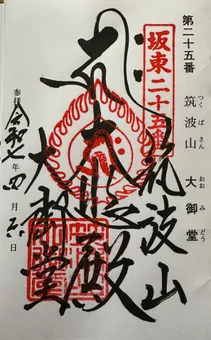 第二十五番
筑波山 大御堂
つくばさん おおみどう
坂東二十五番
筑波山
大悲殿
大御堂
参拝 令和 年 四月 日